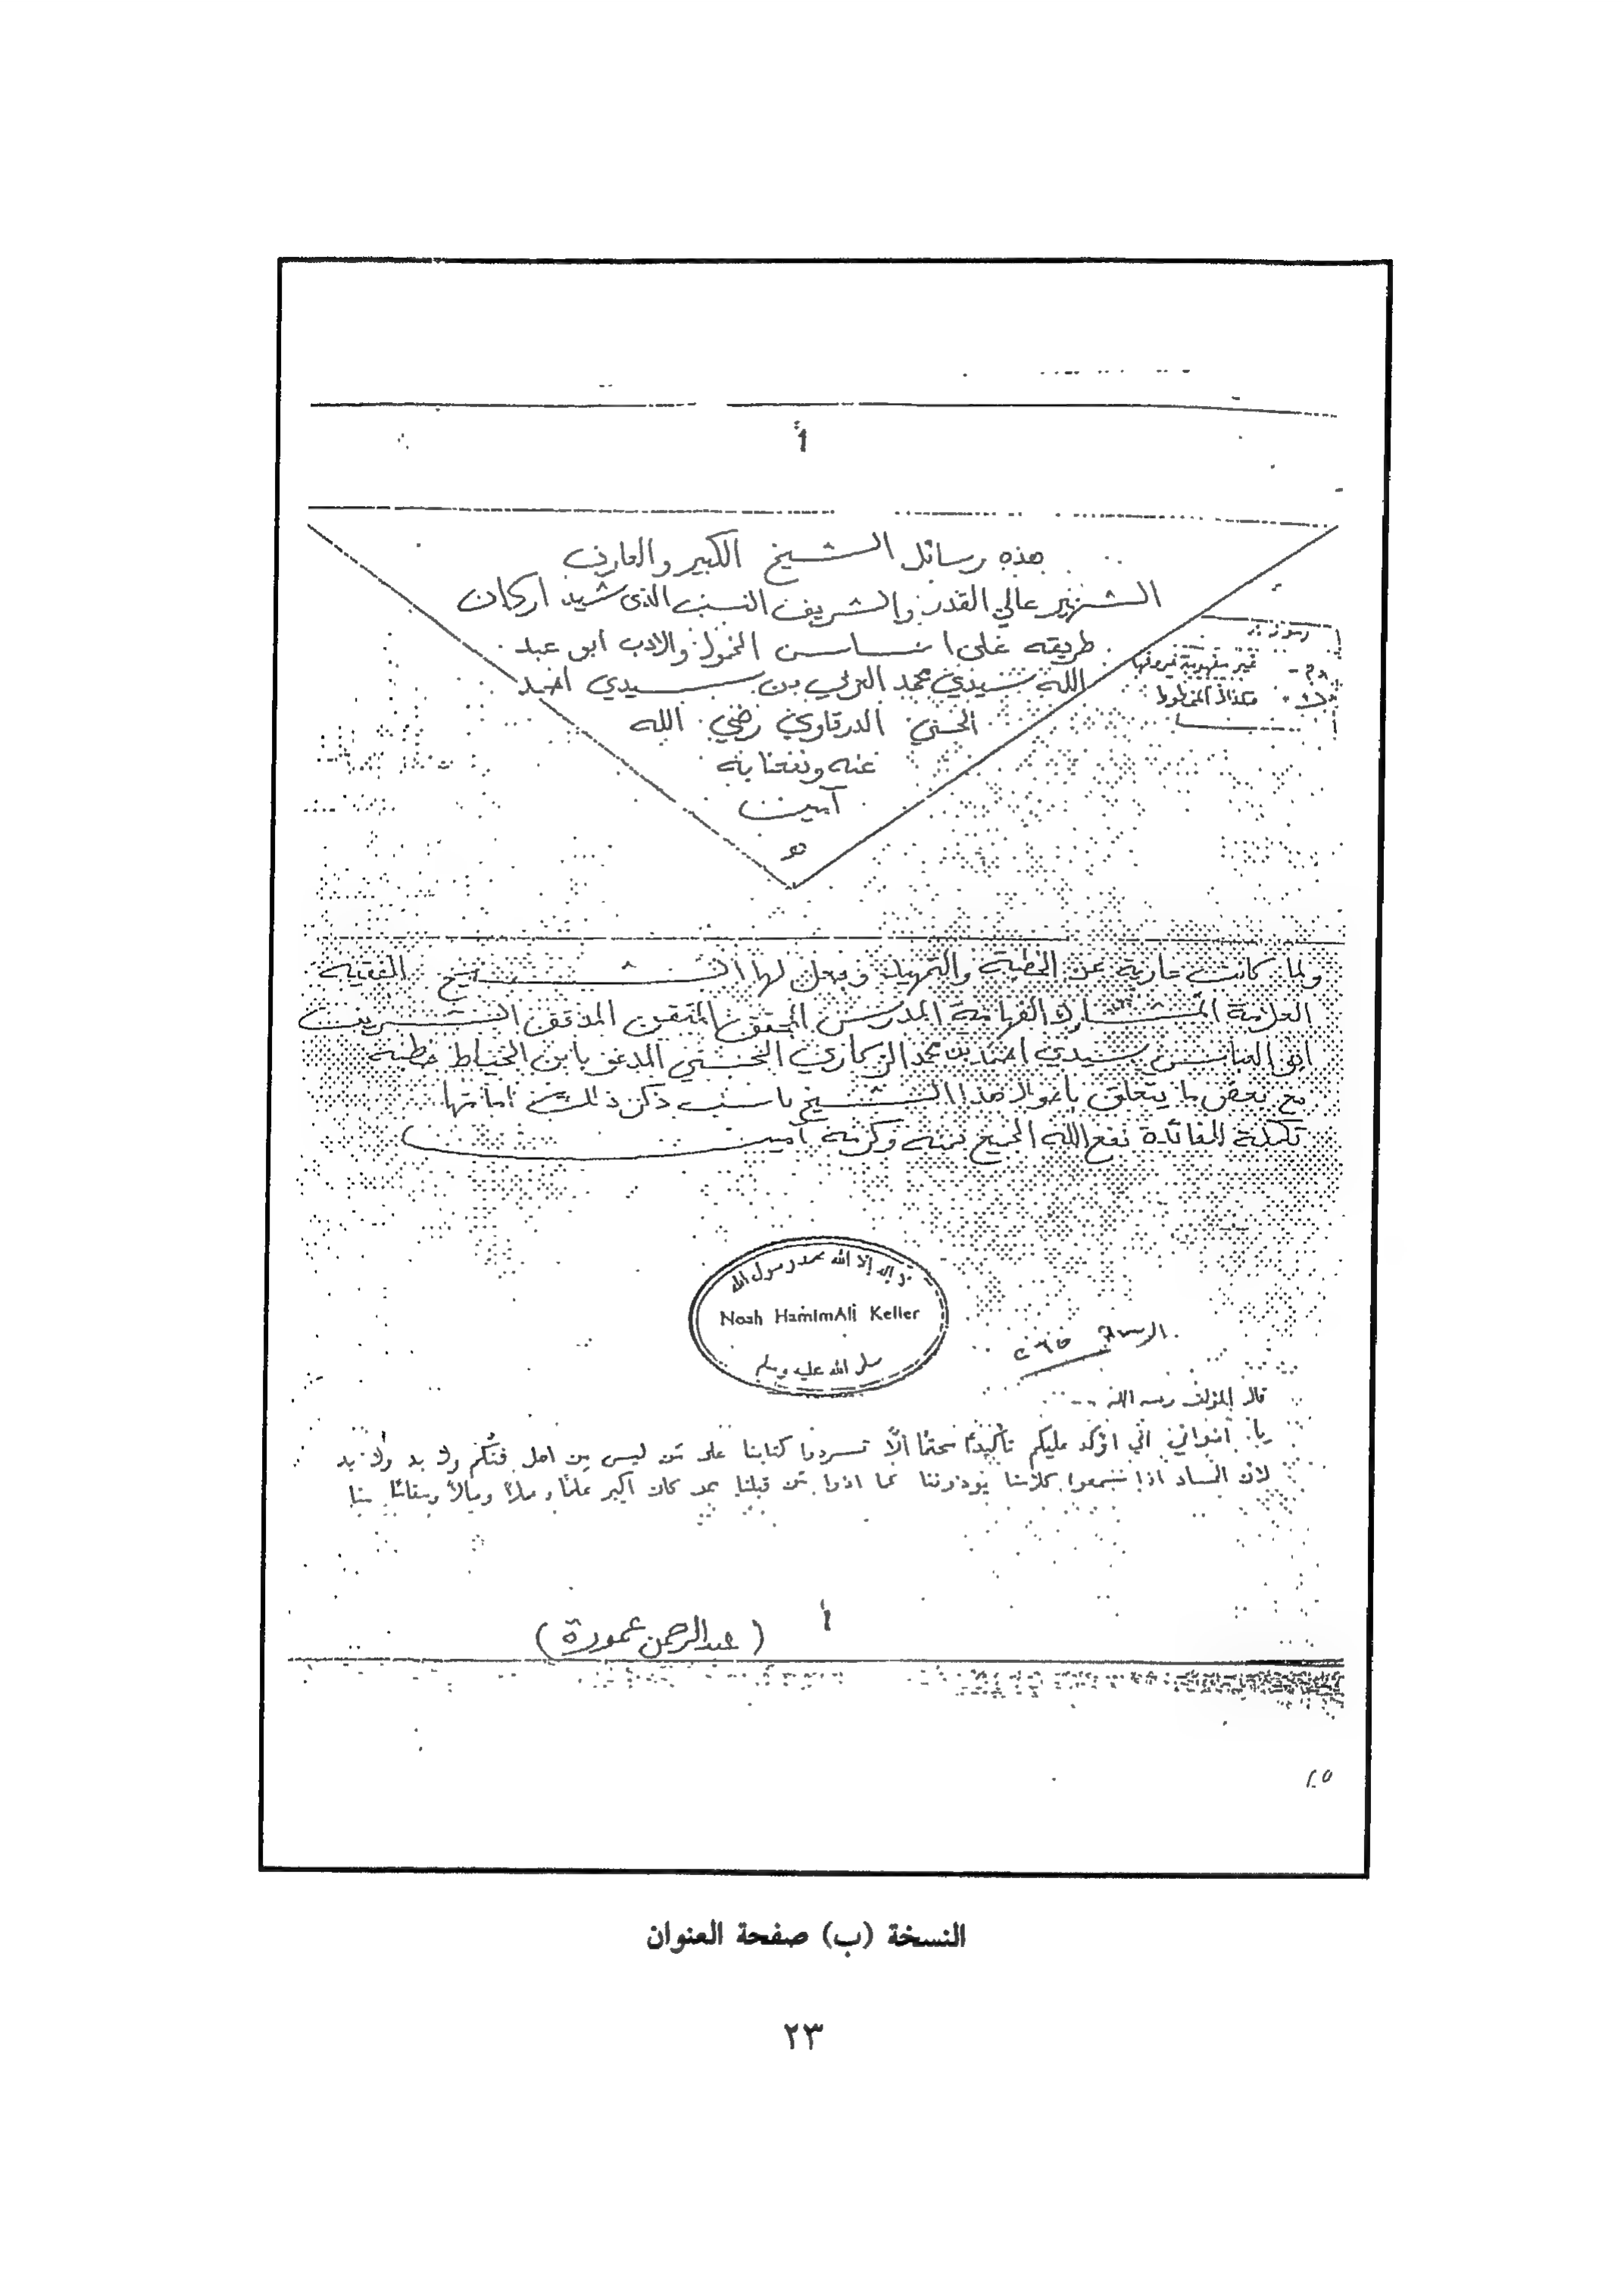 أ
هذه رسائل الشيخ الكبير والعارف
الشهير عالي القدر والشريف النسب الذي شيد اركان
طريقه على اساس الخمول والادب ابو عبد
الله سيدي محمد العربي بن سيدي احمد
الحسني الدرقاوي رضي الله
عنه ونفعنا به
آمين
هـ
رموز
غير مفهومة حروفها
هكذا في المخطوط
ولما كانت عارية عن الخطبة والتمهيد وجعل لها الشيخ الفقيه
العلامة المشارك الفهامة المدرس المحقق المتقن المدقق الشريف
ابو العباس سيدي احمد بن محمد الزكاري الحسني المدعو بابن الخياط خطبة
مع بعض ما يتعلق باحوال هذا الشيخ ناسب ذكر ذلك امامها
تكملة للفائدة نفع الله الجميع بمنه وكرمه آمين
لا إله إلا الله محمد رسول الله
Noah HamimAli Keller
صلى الله عليه وسلم
الرسالة
قال المؤلف رحمه الله --
يا اخواني اني اؤكد عليكم تأكيدًا حتمًا ألَّا تسردوا كتابنا على مَن ليس من اهل فنكم ولا بد ولا بد
لأن اذا سمعوا كلامنا يوذوننا كما اذوا مَن قبلنا ممن كان اكبر علمًا و ومالًا ومقامًا منا
أ
(عبدالرحمن عمورة)
النسخة (ب) صفحة العنوان
٢٣